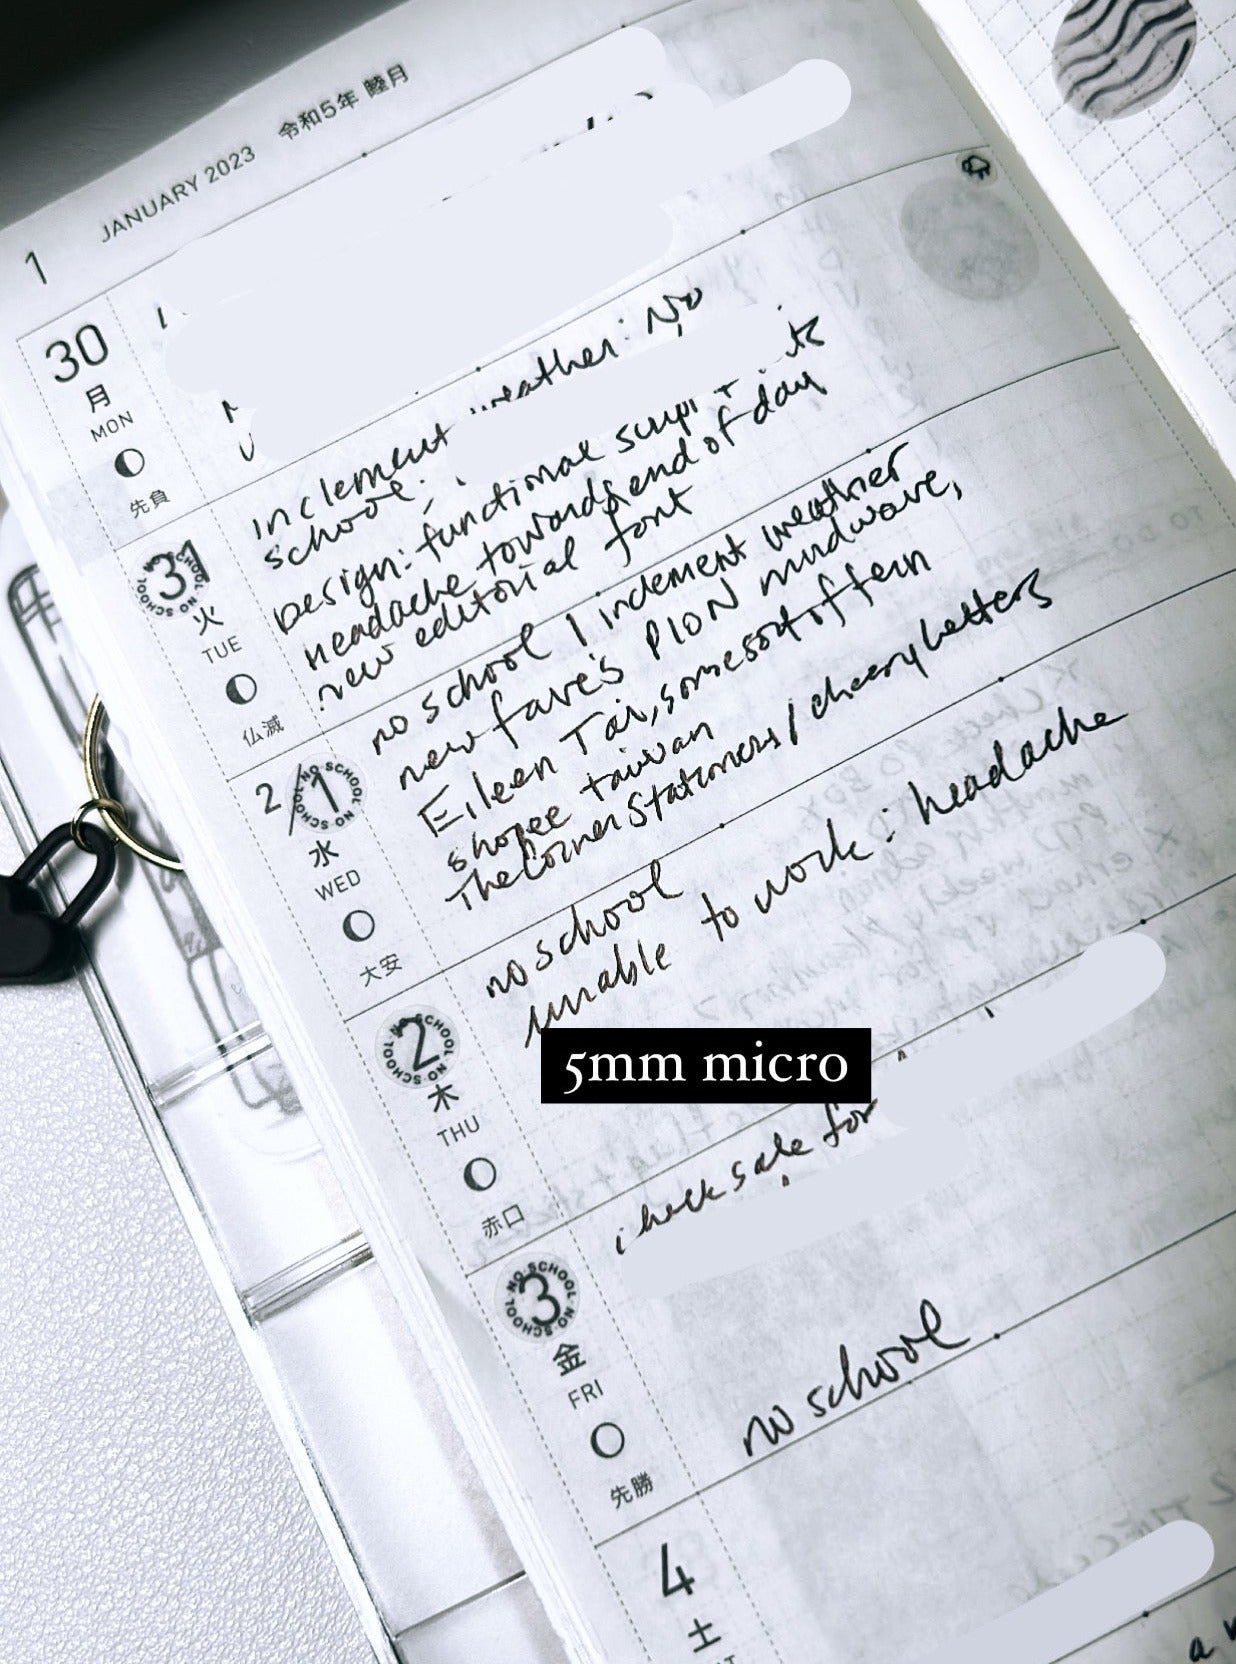 1 JANUARY 2023 令和5年 睦月
30
月
MON
先負
31
NO SCHOOL NO SCHOOL
火
TUE
仏滅
inclement weather: No
school
Design: functional script
headache towards end of day
new editorial font
2/1
NO SCHOOL NO SCHOOL
水
WED
大安
no school / inclement weather
new fave's PION mudwave,
Eileen Tai, some sort of fern
shopee taiwan
The Corner Stationers / cheery letters
2
NO SCHOOL NO SCHOOL
木
THU
赤口
no school
unable to work: headache
5mm micro
3
NO SCHOOL NO SCHOOL
金
FRI
先勝
check sale for
no school
4
土
TO DO